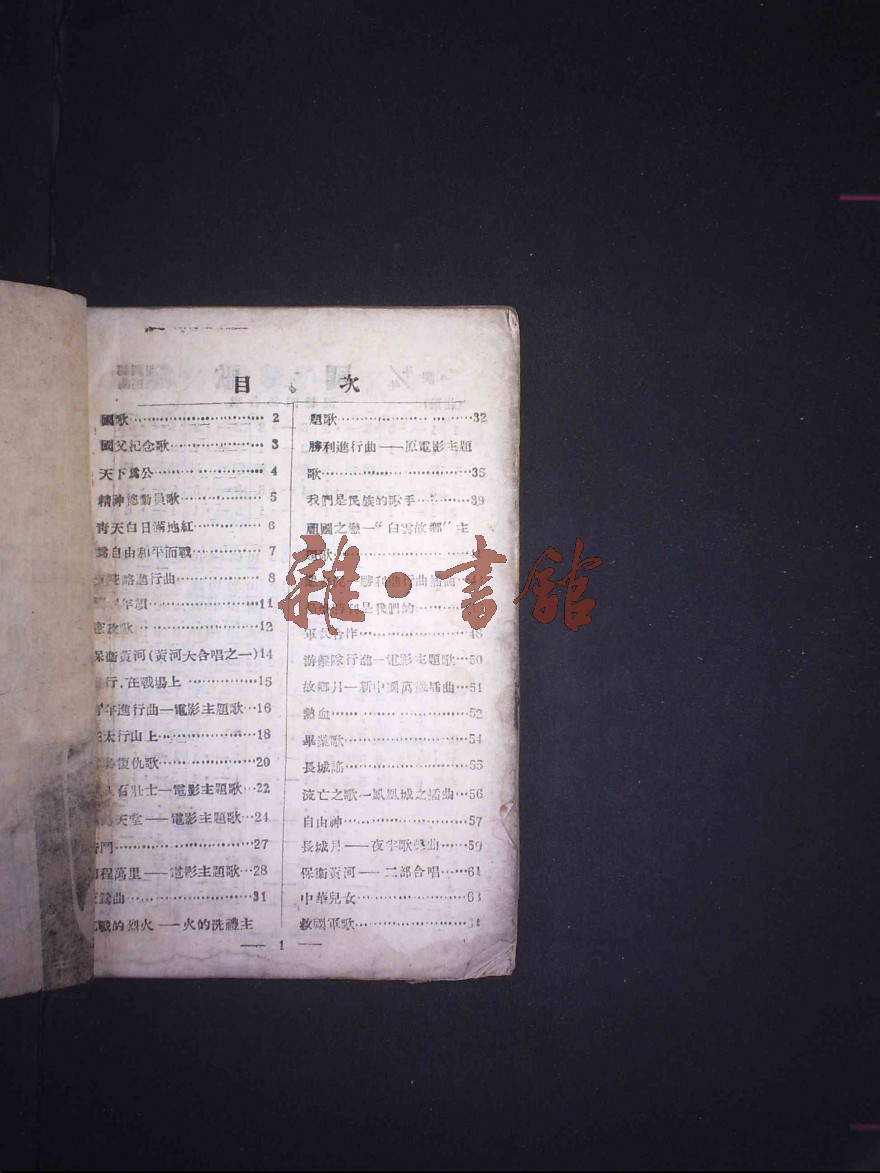 目次
國歌 2
國父紀念歌 3
天下爲公 4
精神總動員歌 5
靑天白日滿地紅 6
爲自由和平而戰 7
略進行曲 8
年頌 11
憲政歌 12
保衛黃河(黃河大合唱之一) 14
行,在戰場上 15
年進行曲—電影主題歌 16
太行山上 18
復仇歌 20
有壯士—電影主題歌 22
天堂—電影主題歌 24
門 27
程萬里—電影主題歌 28
鶯曲 31
戰的烈火—火的洗禮主
題歌 32
勝利進行曲—原電影主題
歌 35
我們是民族的歌手 39
祖國之戀—“白雲故鄉”主
題歌
勝利進行曲插曲
勝利是我們的
軍民合作 48
游擊隊行進—電影主題歌 50
故鄉月—新中國萬歲插曲 51
熱血 52
畢業歌 54
長城謠 55
流亡之歌—鳳凰城之插曲 56
自由神 57
長城月—夜半歌聲曲 59
保衛黃河—二部合唱 61
中華兒女 63
救國軍歌 64
— 1 —
雜·書館